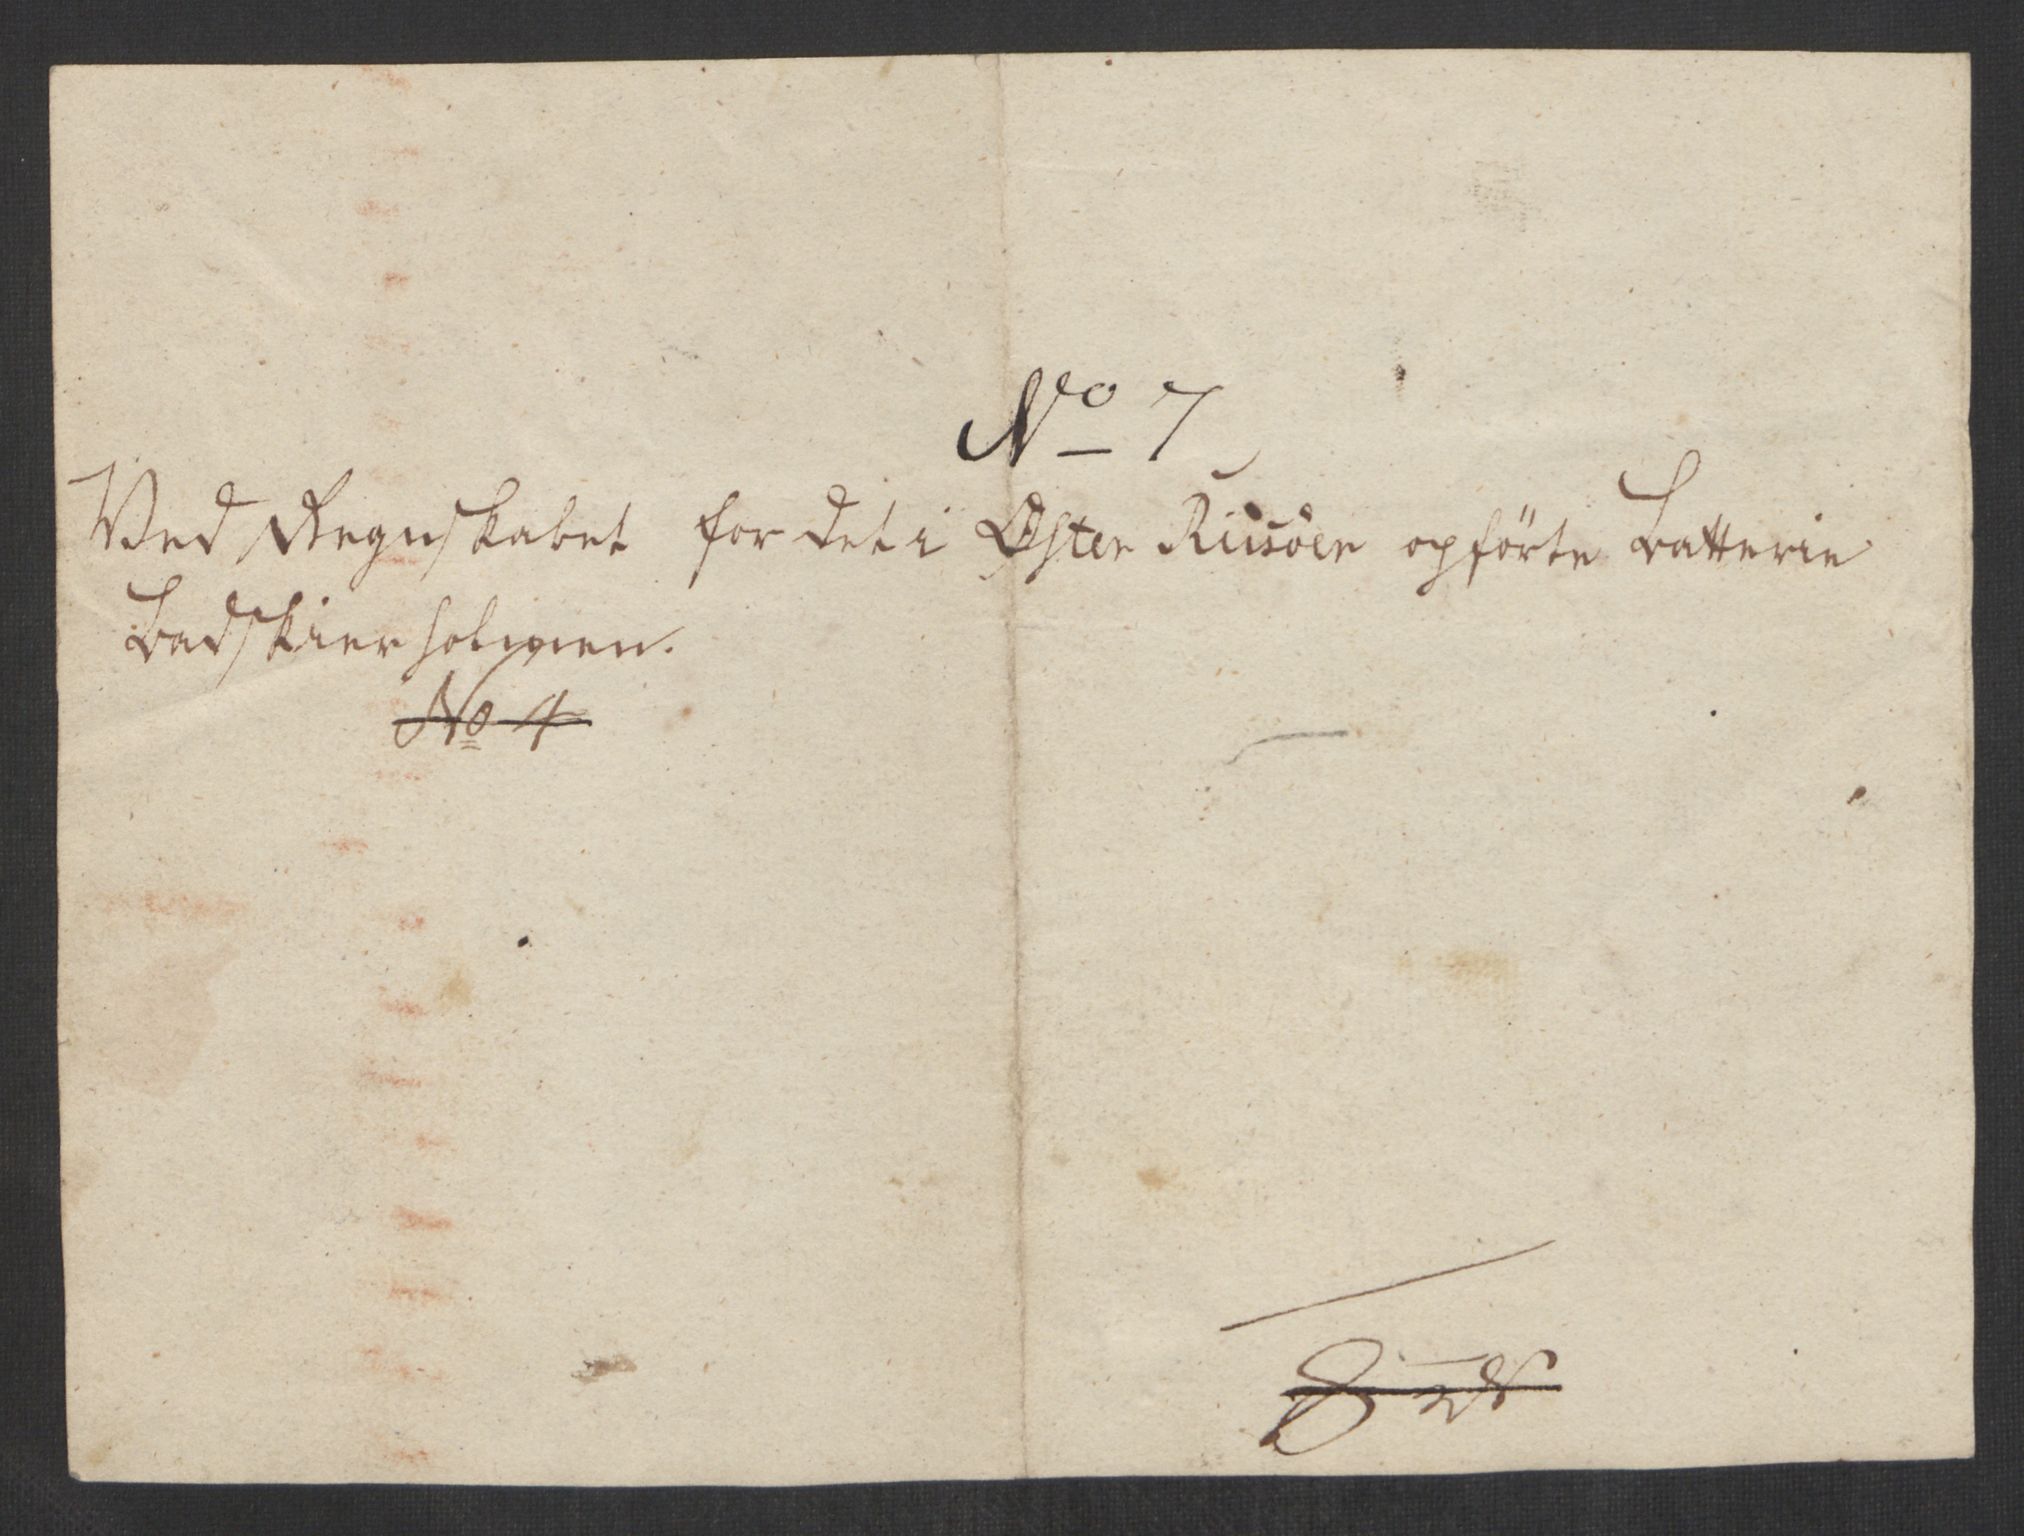 No 7
Ved Regnskabet for det i Öster Riisöer opförte Batterie
Badskierholmen.
No 4